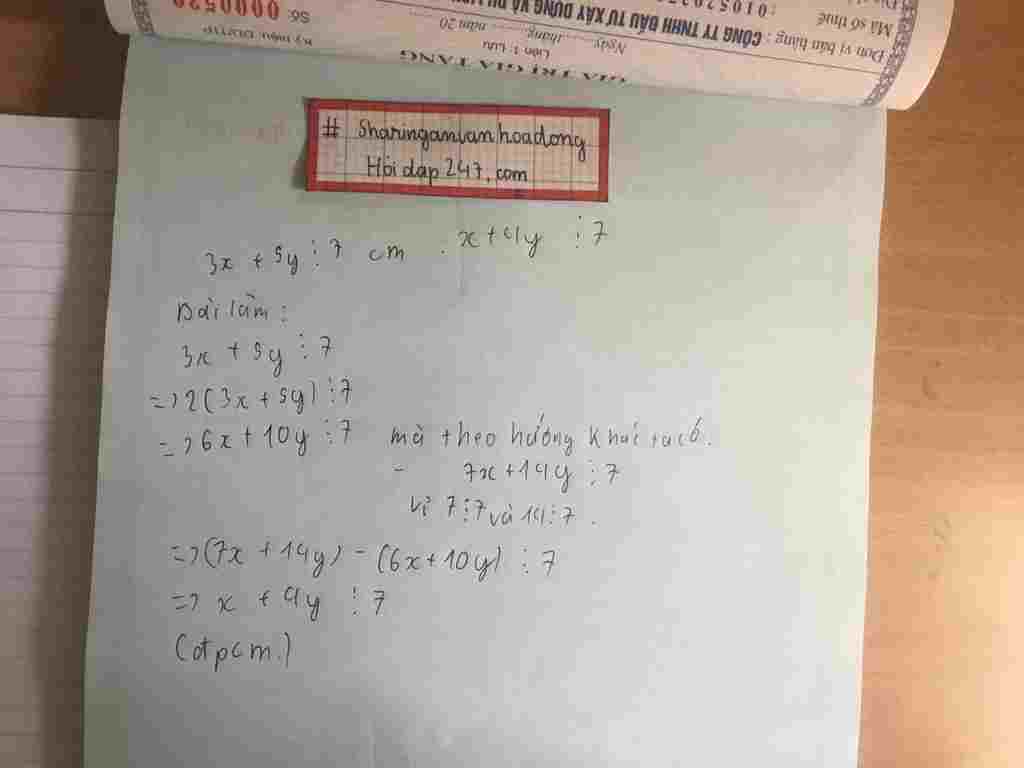 Đơn vị bán hàng : CÔNG TY TNHH ĐẦU TƯ XÂY DỰNG VÀ
Mã số thuế : 
Số: 0000520
Ký hiệu:
GIÁ TRỊ GIA TĂNG
Liên 1: Lưu
Ngày.......tháng.......năm 20
# Sharinganvanhoadong
Hỏi dap 247. com
3x + 5y ⋮ 7 cm . x + 4y ⋮ 7
Bài làm :
3x + 5y ⋮ 7
=> 2(3x + 5y) ⋮ 7
=> 6x + 10y ⋮ 7 mà theo hướng khác ta có.
- 7x + 14y ⋮ 7
Vì 7 ⋮ 7 và 14 ⋮ 7 .
=> (7x + 14y) - (6x + 10y) ⋮ 7
=> x + 4y ⋮ 7
(đpcm.)